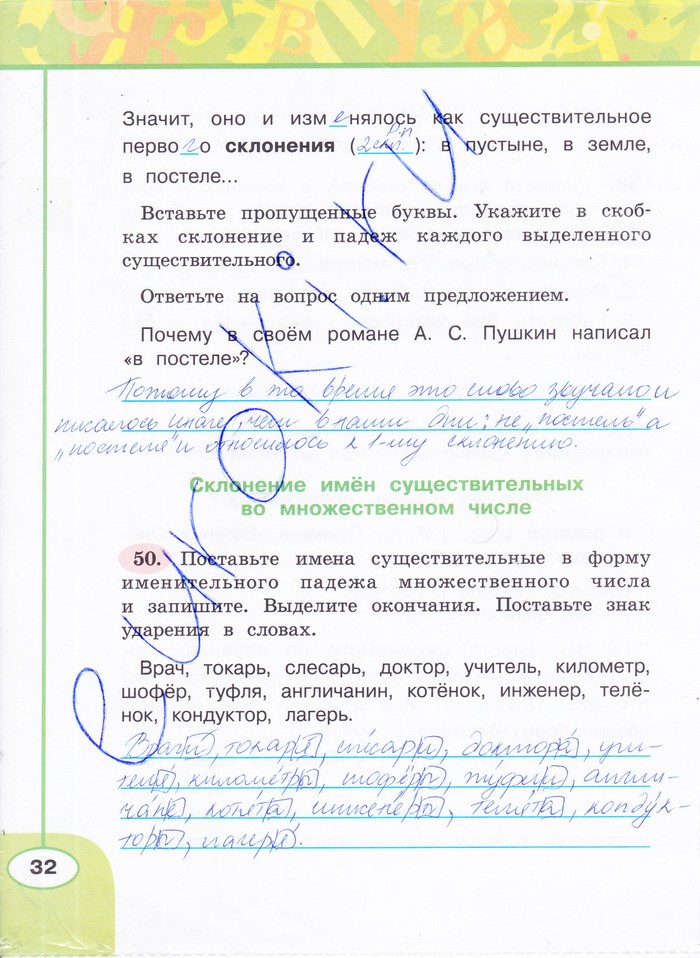 Значит, оно и изменялось как существительное
первого склонения (2 скл. П.п.): в пустыне, в земле,
в постеле...
Вставьте пропущенные буквы. Укажите в скоб-
ках склонение и падеж каждого выделенного
существительного.
Ответьте на вопрос одним предложением.
Почему в своём романе А. С. Пушкин написал
«в постеле»?
Потому в то время это слово звучало и
писалось иначе, чем в наши дни: не „постель" а
„постеля" и относилось к 1-му склонению.
Склонение имён существительных
во множественном числе
50. Поставьте имена существительные в форму
именительного падежа множественного числа
и запишите. Выделите окончания. Поставьте знак
ударения в словах.
Врач, токарь, слесарь, доктор, учитель, километр,
шофёр, туфля, англичанин, котёнок, инженер, телё-
нок, кондуктор, лагерь.
Врачи́, то́кари, сле́сари, доктора́, учи-
теля́, киломе́тры, шофёры, ту́фли, англи-
ча́не, котя́та, инжене́ры, теля́та, конду́к-
торы, лагеря́.
32
e
urokiki